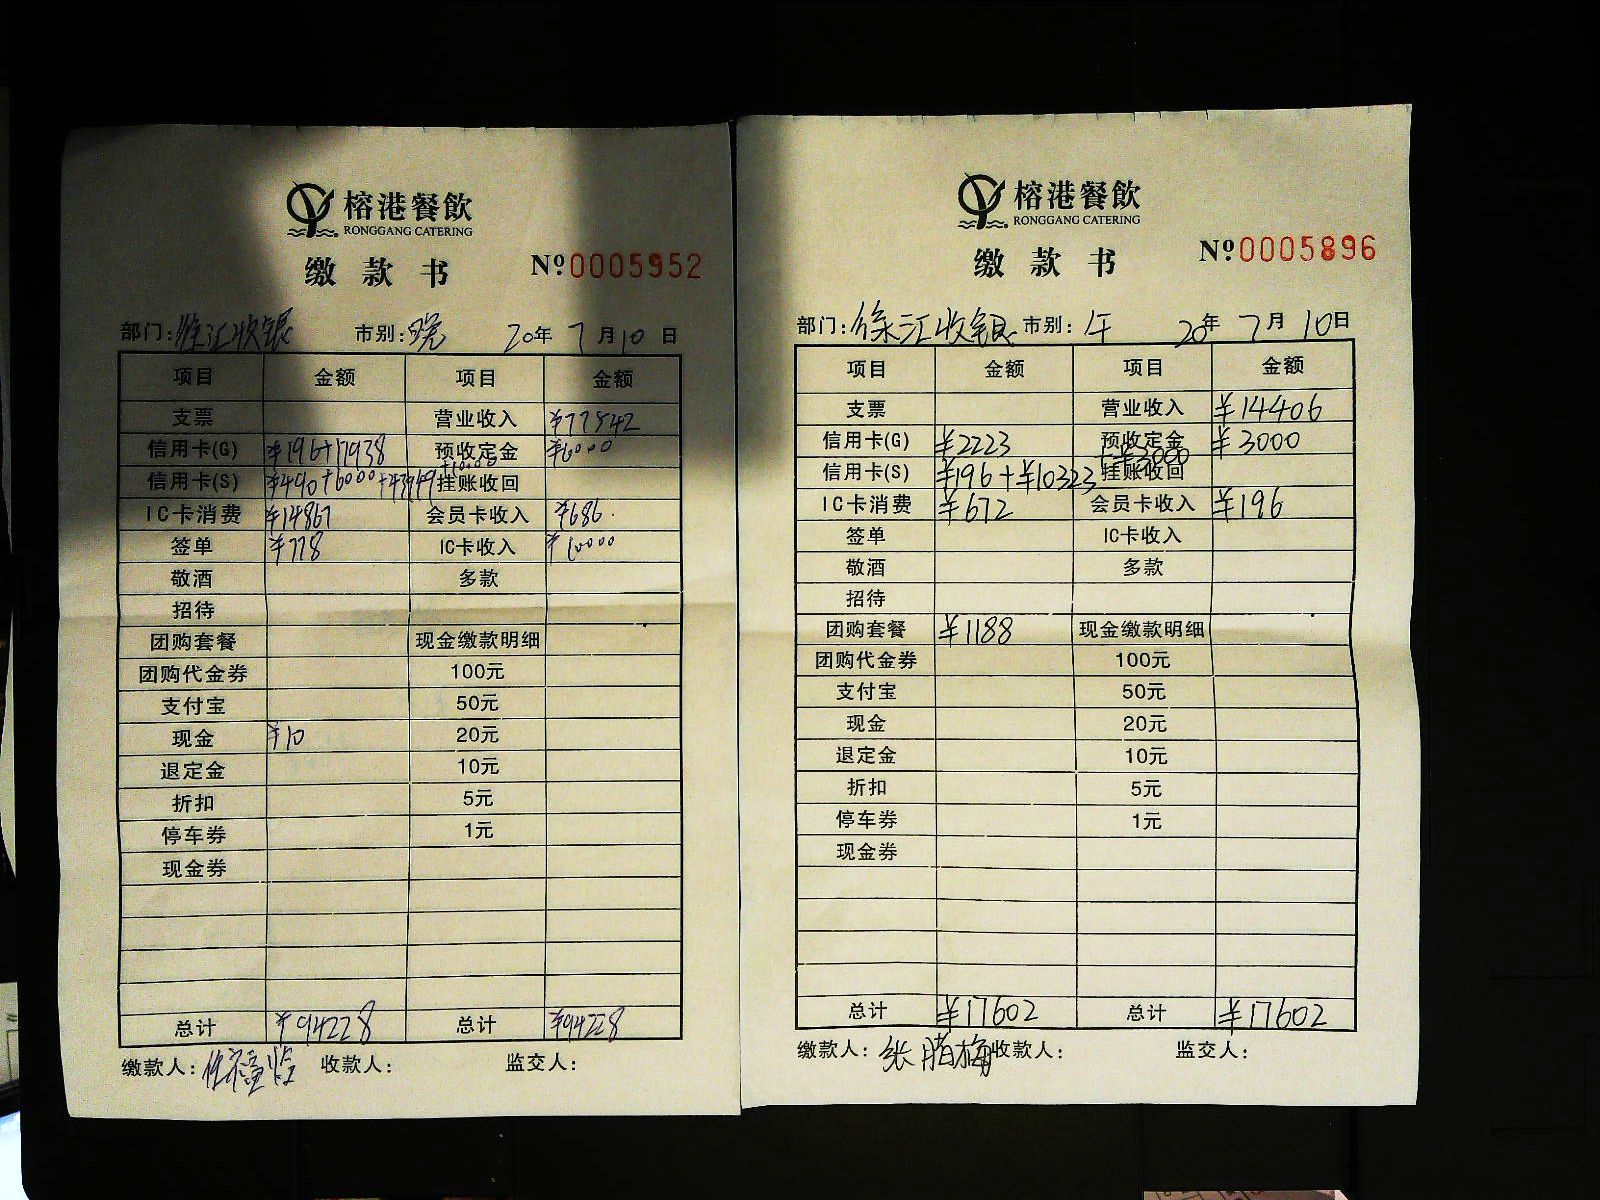 榕港餐飲
RONGGANG CATERING
缴款书 Nº0005952
部门:徐汇收银 市别:晚 20年7月10日
项目 金额 项目 金额
支票 营业收入 ¥77542
信用卡(G) ¥196+17938 预收定金 ¥6000
信用卡(S) ¥490+6000+43949+10000 挂账收回
IC卡消费 ¥14867 会员卡收入 ¥686
签单 ¥778 IC卡收入 ¥10000
敬酒 多款
招待
团购套餐 现金缴款明细
团购代金券 100元
支付宝 50元
现金 ¥10 20元
退定金 10元
折扣 5元
停车券 1元
现金券
总计 ¥94228 总计 ¥94228
缴款人: 收款人: 监交人:
榕港餐飲
RONGGANG CATERING
缴款书 Nº0005896
部门:徐汇收银 市别:午 20年7月10日
项目 金额 项目 金额
支票 营业收入 ¥14406
信用卡(G) ¥2223 预收定金 ¥3000
信用卡(S) ¥196+¥10323+¥3000 挂账收回
IC卡消费 ¥672 会员卡收入 ¥196
签单 IC卡收入
敬酒 多款
招待
团购套餐 ¥1188 现金缴款明细
团购代金券 100元
支付宝 50元
现金 20元
退定金 10元
折扣 5元
停车券 1元
现金券
总计 ¥17602 总计 ¥17602
缴款人:张腊梅 收款人: 监交人: